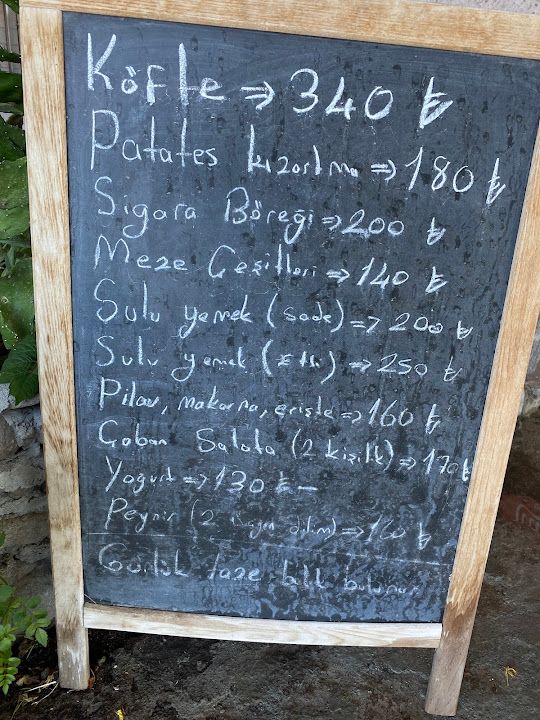 Köfte ⇒ 340 ₺
Patates kızartma ⇒ 180 ₺
Sigara Böreği ⇒ 200 ₺
Meze Çeşitleri ⇒ 140 ₺
Sulu yemek (sade) ⇒ 200 ₺
Sulu yemek (etli) ⇒ 250 ₺
Pilav, makarna, erişte ⇒ 160 ₺
Çoban Salata (2 kişilik) ⇒ 170 ₺
Yogurt ⇒ 130 ₺ –
Peynir (2 dilim) ⇒ 160 ₺
Günlük taze balık bulunur